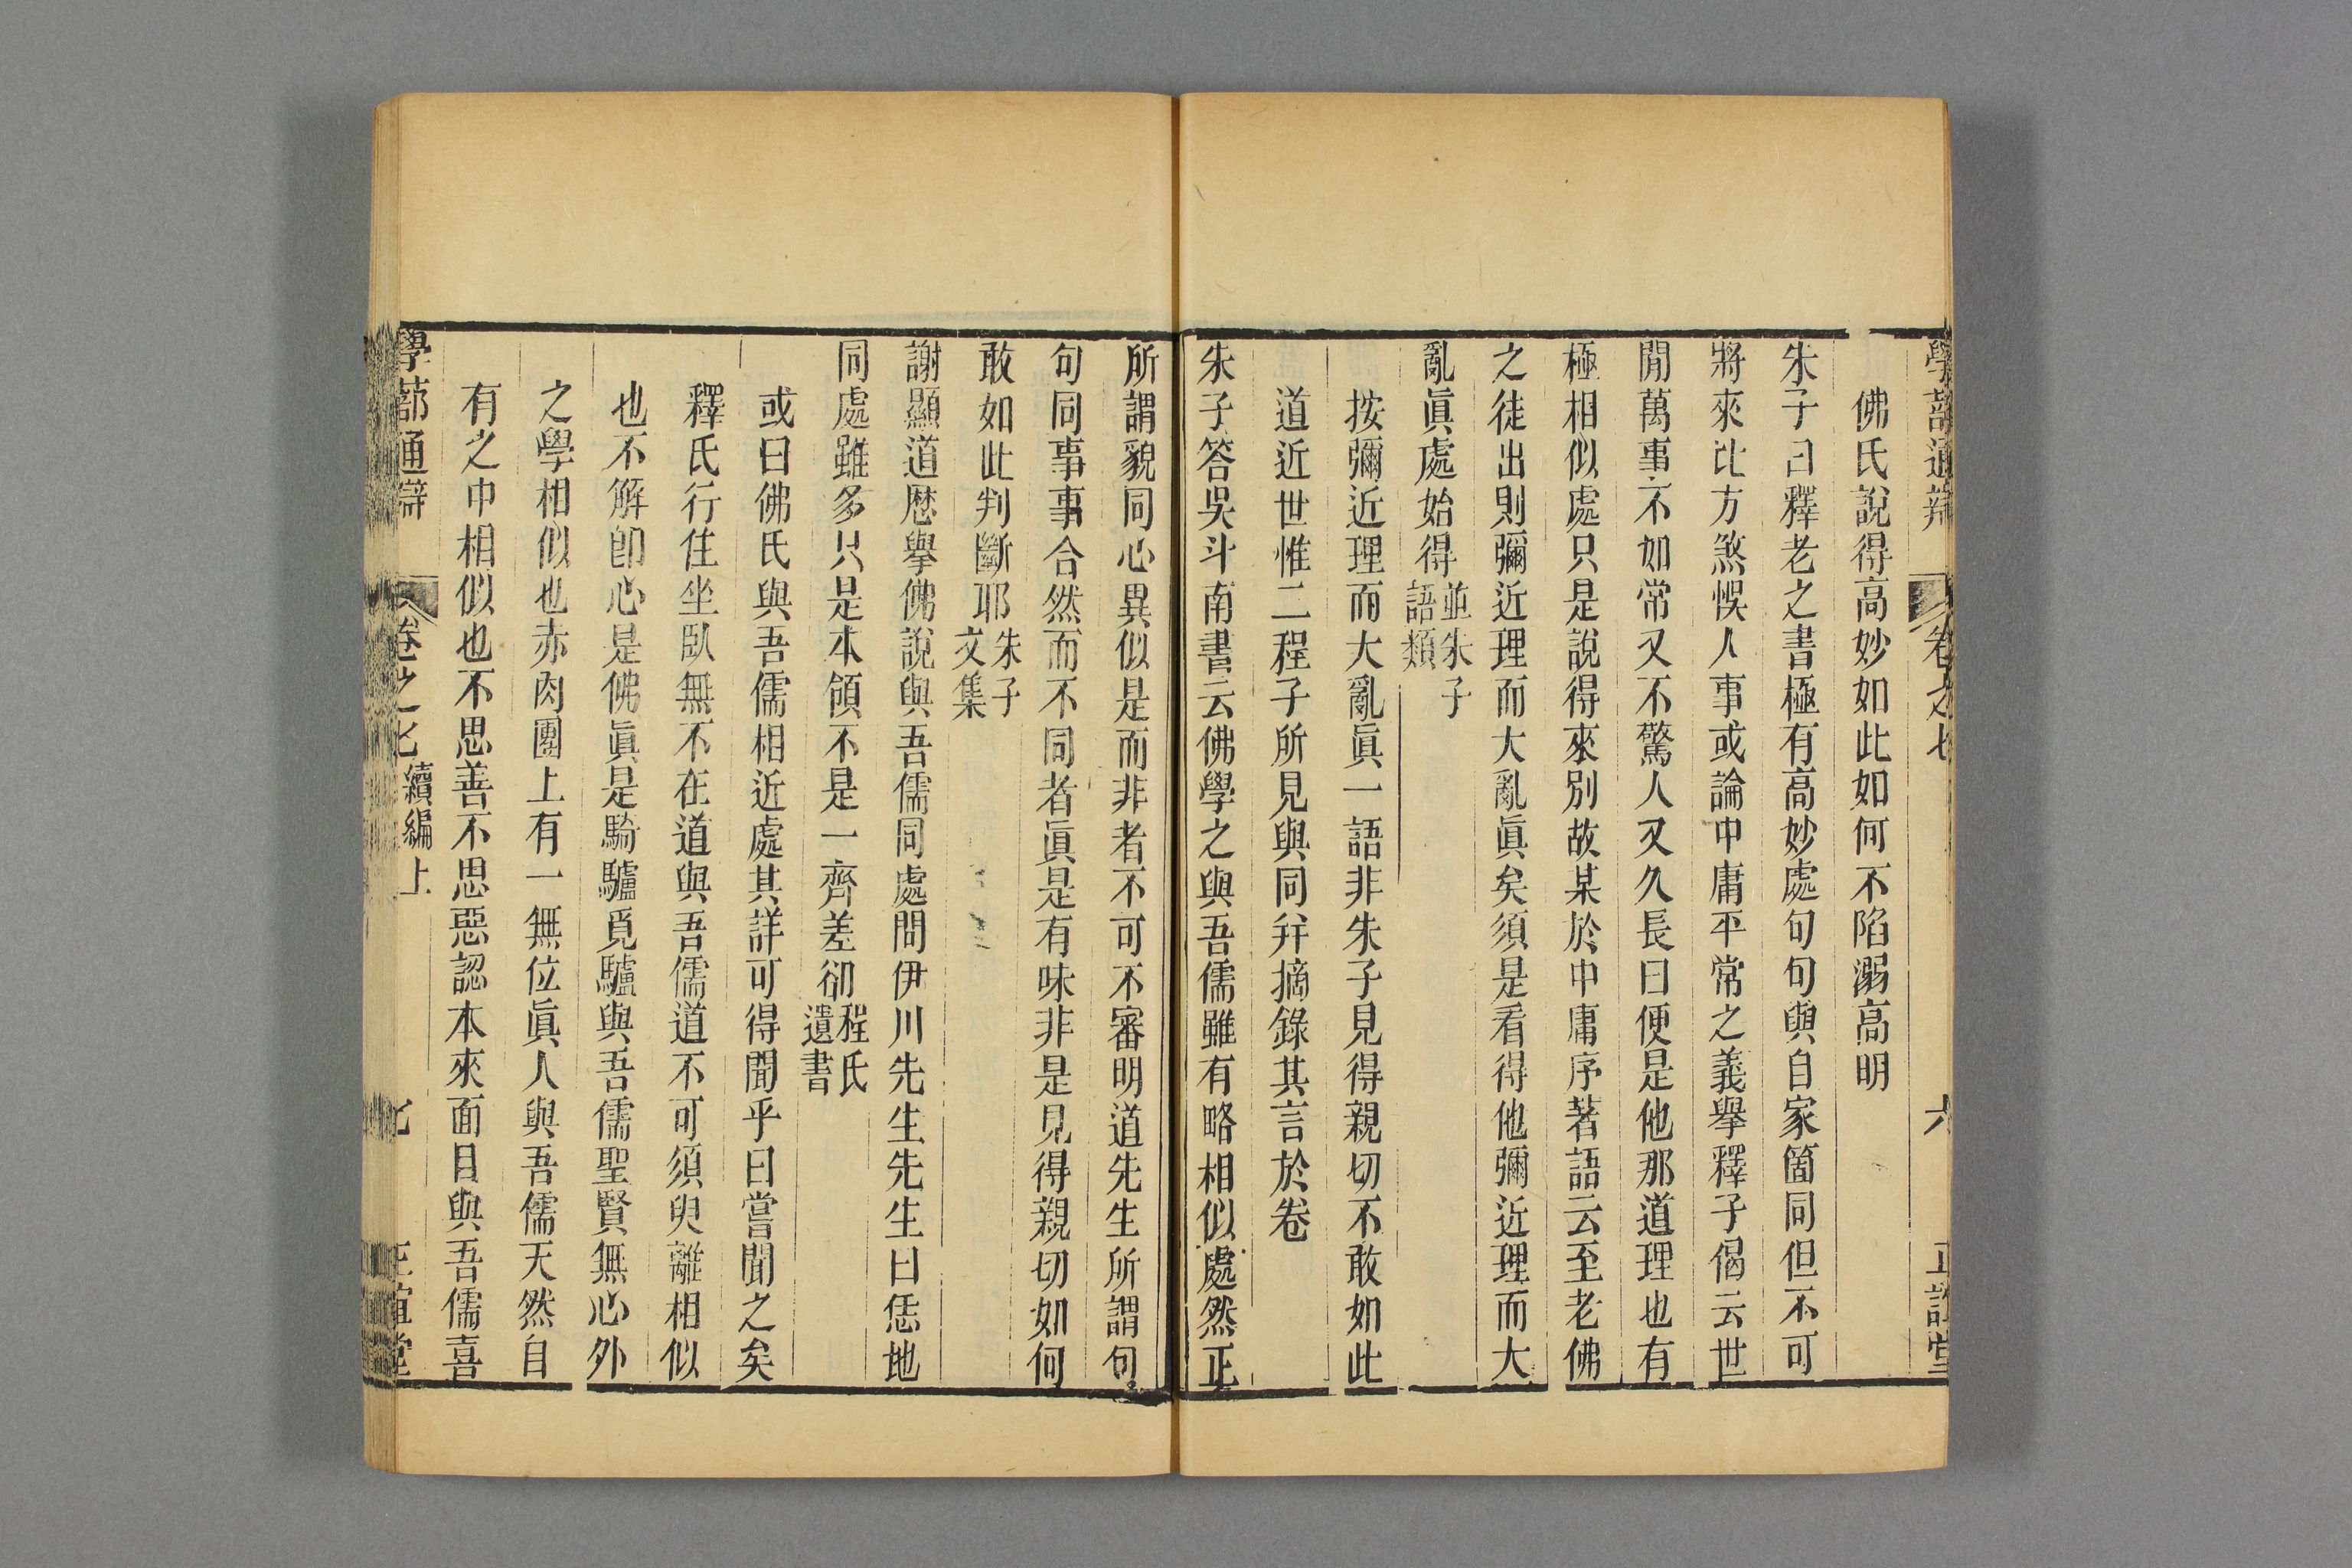 學蔀通辯 卷之七 六 正誼堂
佛氏說得高妙如此如何不陷溺高明
朱子曰釋老之書極有高妙處句句與自家箇同但不可
將來比方煞悞人事或論中庸平常之義舉釋子偈云世
閒萬事不如常又不驚人又久長曰便是他那道理也有
極相似處只是說得來別故某於中庸序著語云至老佛
之徒出則彌近理而大亂眞矣須是看得他彌近理而大
亂眞處始得並朱子語類
按彌近理而大亂眞一語非朱子見得親切不敢如此
道近世惟二程子所見與同幷摘錄其言於卷
朱子答吳斗南書云佛學之與吾儒雖有略相似處然正
所謂貌同心異似是而非者不可不審明道先生所謂句
句同事事合然而不同者眞是有味非是見得親切如何
敢如此判斷耶朱子文集
謝顯道歷舉佛說與吾儒同處問伊川先生先生曰恁地
同處雖多只是本領不是一齊差卻程氏遺書
或曰佛氏與吾儒相近處其詳可得聞乎曰嘗聞之矣
釋氏行住坐臥無不在道與吾儒道不可須臾離相似
也不解卽心是佛眞是騎驢覓驢與吾儒聖賢無心外
之學相似也赤肉團上有一無位眞人與吾儒天然自
有之中相似也不思善不思惡認本來面目與吾儒喜
學蔀通辯 卷之七 續編上 七 正誼堂